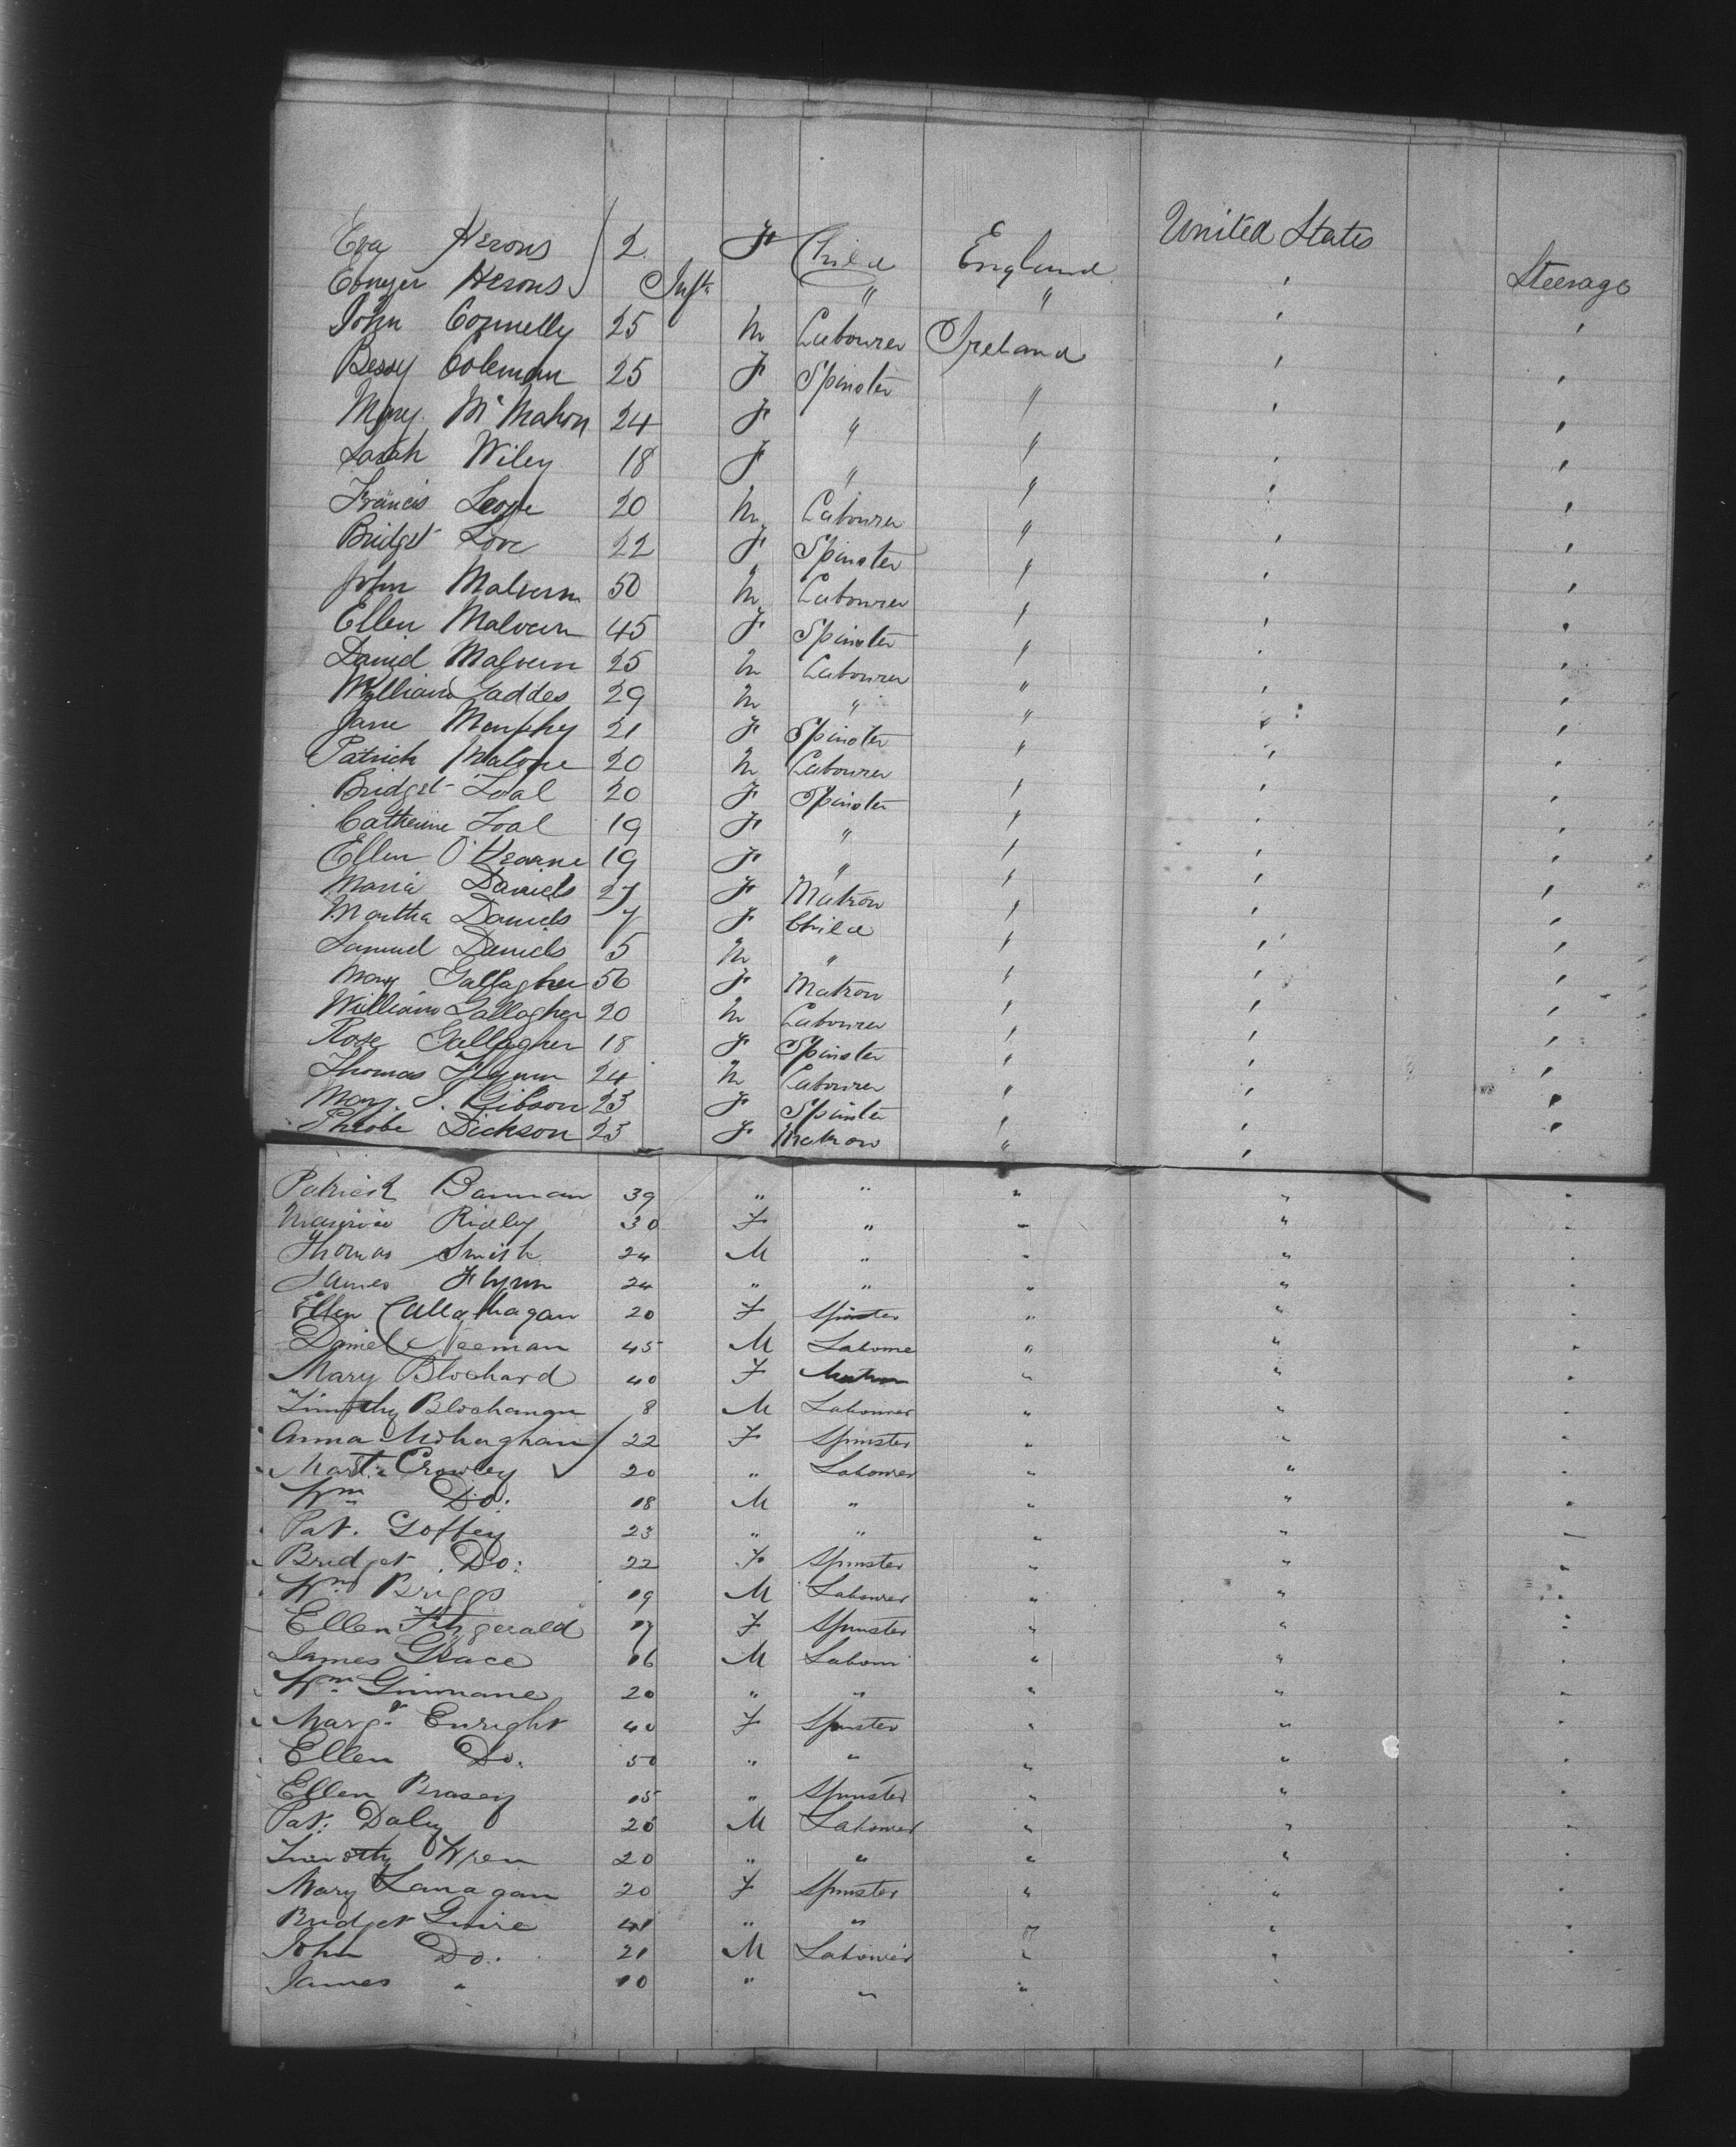 Eva Herons 2 F Child England United States Steerage
Herons Inft " " '
John Connelly 25 M Labourer Ireland ' '
Bessy Coleman 25 F Spinster " ' '
Mary McMahon 24 F " " ' '
Sarah Wiley 18 F " " ' '
Francis 20 M Labourer " ' '
Bridget Love 22 F Spinster " ' '
John Malvern 50 M Labourer " ' '
Ellen Malvern 45 F Spinster " ' '
David Malvern 25 M Labourer " ' '
William Gaddes 29 M " " ' '
Jane Murphy 21 F Spinster " ' '
Patrick Malone 20 M Labourer " ' '
Bridget Toal 20 F Spinster " ' '
Catherine Toal 19 F " " ' '
Ellen O'Kearne 19 F " " ' '
Maria Daniels 27 F Matron " ' '
Martha Daniels 7 F Child " ' '
Samuel Daniels 5 M " " ' '
Mary Gallagher 56 F Matron " ' '
William Gallagher 20 M Labourer " ' '
Rose Gallagher 18 F Spinster " ' '
Thomas Flynn 24 M Labourer " ' '
Mary J. Gibson 23 F Spinster " ' '
Phoebe Dickson 25 F Matron " '
Patrick Bannan 39 " " " " "
Ridley 30 F " " " "
Thomas Smith 24 M " " " "
James Flynn 24 " " " " "
Ellen Callaghagan 20 F Spinster " " "
Daniel Neeman 45 M Laboure " " "
Mary Blochard 40 F Matron " " "
Timothy Blochanan 8 M Labourer " " "
Anna Mohaghan 22 F Spinster " " "
Mart: Crowley 20 " Labourer " " "
Wm Do: 18 M " " " "
Pat. Goffey 23 " " " " "
Bridget Do: 22 F Spinster " " "
Wm Briggs 19 M Labourer " " "
Ellen Fitzgerald 17 F Spinster " " "
James Grace 16 M Labour " " "
Wm Ginnane 20 " " " " "
Margt Enright 40 F Spinster " " "
Ellen Do. 50 " " " " "
Ellen Brasey 15 " Spinster " " "
Pat: Daly 25 M Labourer " " "
Timothy Wren 20 " " " " "
Mary Lanagan 20 F Spinster " " "
Bridget Guire 41 " " " " "
John Do. 21 M Labourer " " "
James " 10 " " " "